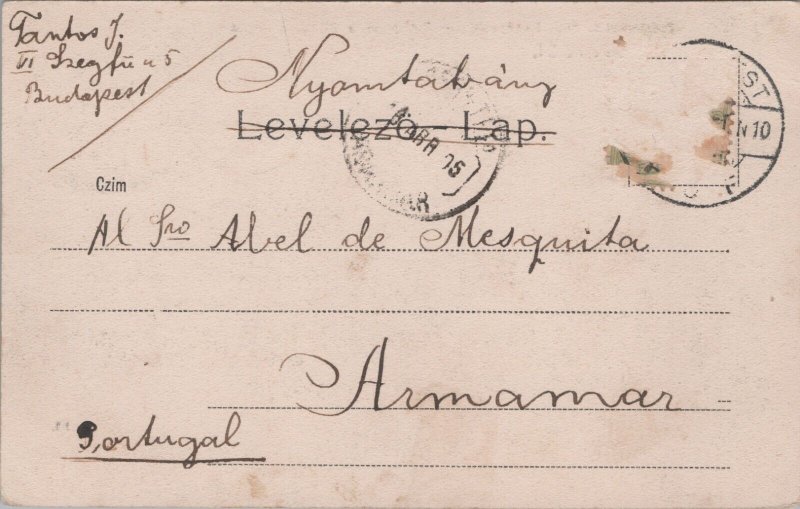 Tantos J.
VI Szegfű u 5
Budapest
Nyomtatvány
Levelező - Lap.
Czim
Al Sro Abel de Mesquita
Armamar
Portugal